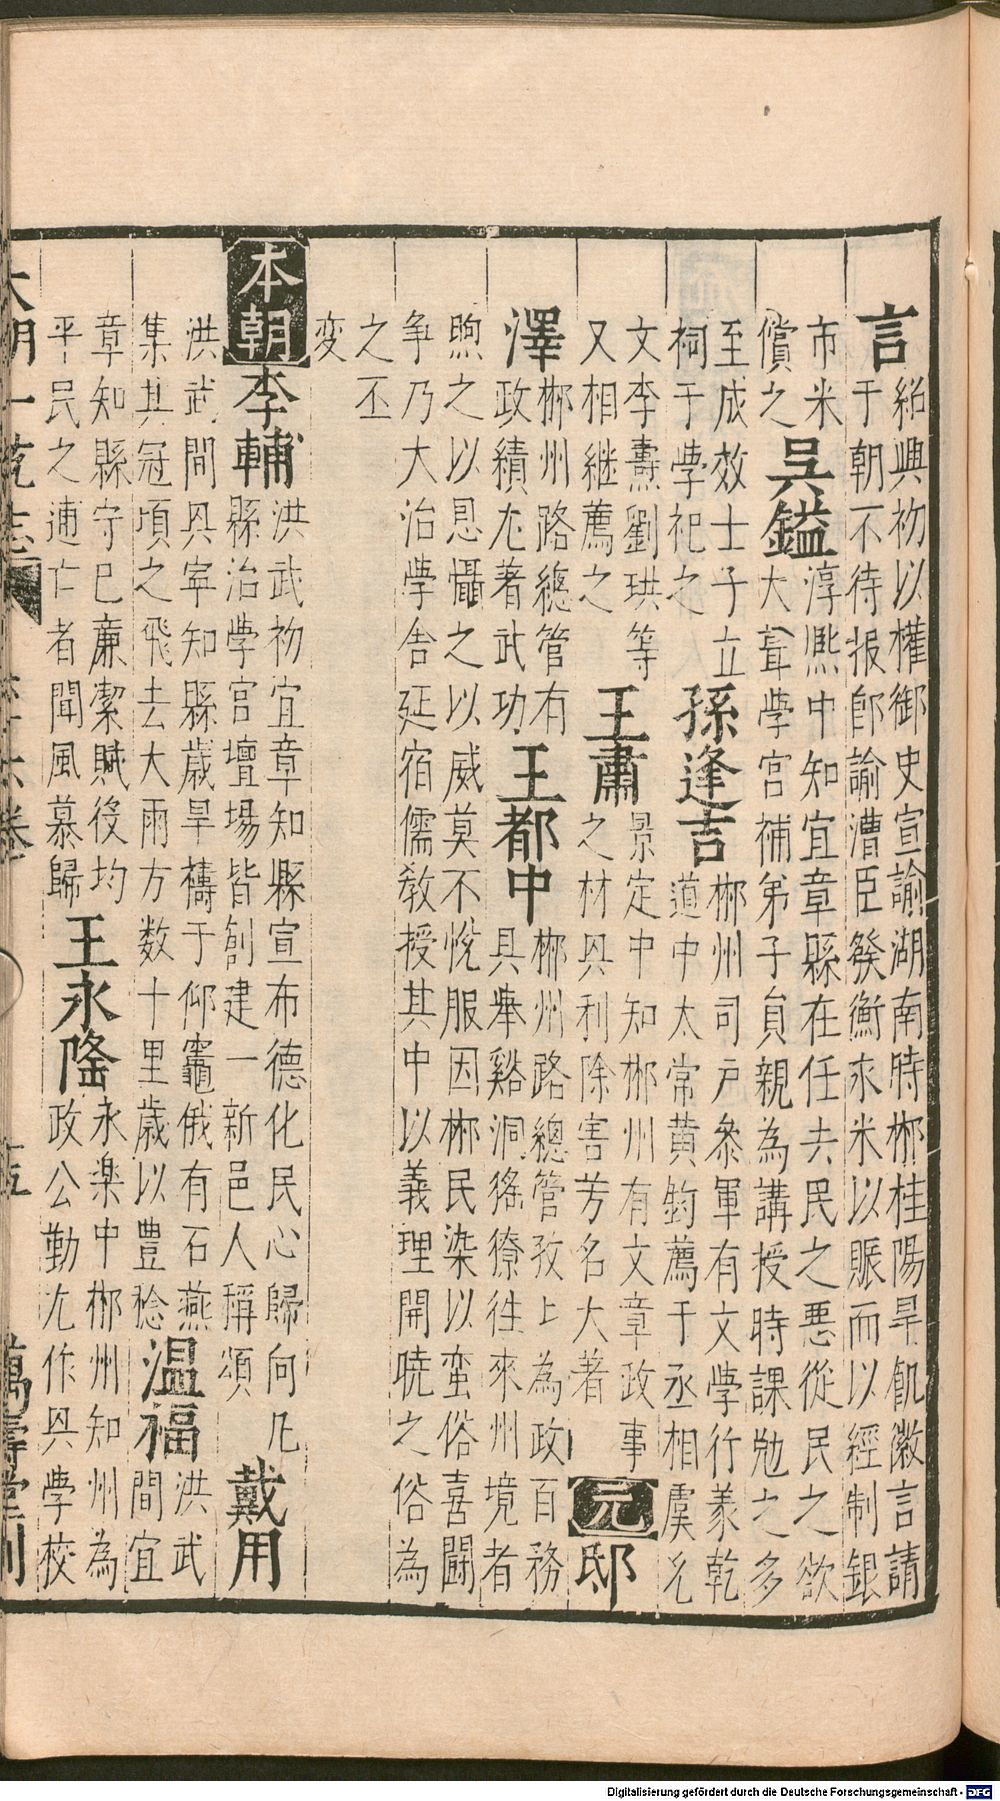 言 紹興初以權御史宣諭湖南時郴桂陽旱飢徽言請
于朝不待报卽諭漕臣發衡永米以賑而以經制銀
市米
償之 吳鎰 淳熈中知宜章縣在任去民之悪從民之欲
大葺學宮補弟子員親為講授時課勉之多
至成效士子立
祠于學祀之 孫逢吉 郴州司戶叅軍有文學行義乾
道中太常黄鈞薦于丞相虞允
文李燾劉珙等
又相継薦之 王肅 景定中知郴州有文章政事
之材兴利除害芳名大著 元 邸
澤 郴州路緫管有
政績尤著武功 王都中 郴州路總管孜上為政百務
具舉谿洞猺獠往來州境者
煦之以恩懾之以威莫不悅服因郴民染以蛮俗喜闘
争乃大治學舎延宿儒敎授其中以義理開暁之俗為
之丕
变
本朝 李輔 洪武初宜章知縣宣布德化民心歸向凡
縣治學宮壇場皆創建一新邑人稱頌 戴用
洪武間兴宰知縣歳旱禱于仰竈俄有石燕
集其冠頃之飛去大雨方数十里歳以豊稔 温福 洪武
間宜
章知縣守已亷潔賦役均
平民之逋亡者聞風慕歸 王永隆 永楽中郴州知州為
政公勤尤作兴學校
大明一茺志 六十六卷 五 萬壽堂刊
Digitalisierung gefördert durch die Deutsche Forschungsgemeinschaft - DFG